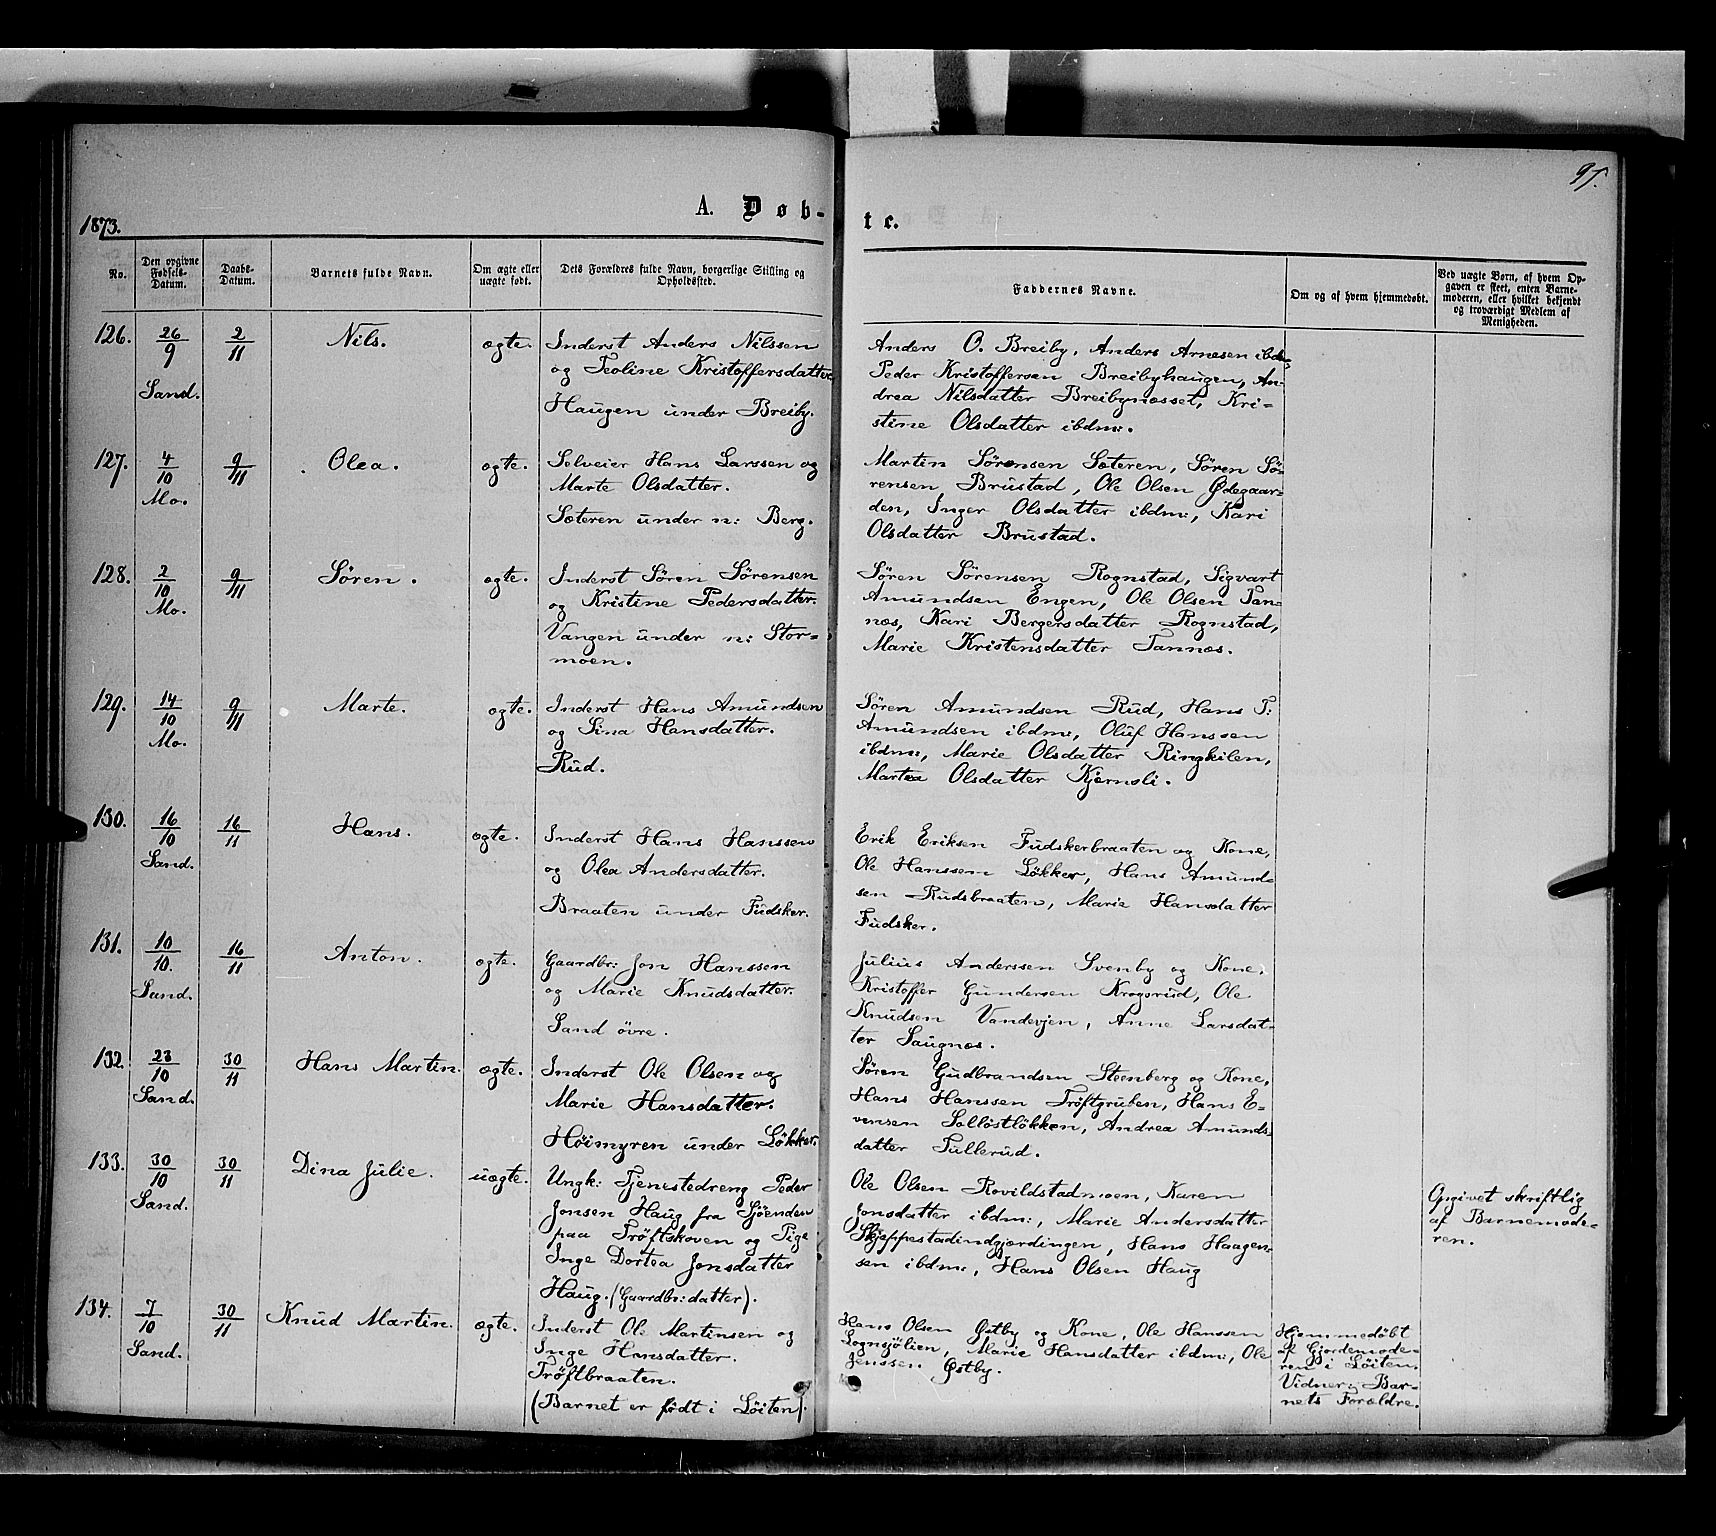 97.
A. Døb-
te.
1873.
No.
Den opgivne
Fødsels-
Datum.
Daabs-
Datum.
Barnets fulde Navn.
Om ægte eller
uægte født.
Dets Forældres fulde Navn, borgerlige Stilling og
Opholdssted.
Faddernes Navne.
Om og af hvem hjemmedøbt.
Ved uægte Børn, af hvem Op-
gaven er skeet, enten Barne-
moderen, eller hvilket bekjendt
og troværdigt Medlem af
Menigheden.
126.
26/9
Sand.
2/11
Nils.
ægte.
Inderst Anders Nilssen
og Teoline Kristoffersdatter
Haugen under Breiby.
Anders O. Breiby, Anders Arnesen ibdm,
Peder Kristoffersen Breibyhaugen, An-
drea Nilsdatter Breibynæsset, Kri-
stine Olsdatter ibdm:.
127.
4/10
Mo.
9/11
Olea.
ægte.
Selveier Hans Larssen og
Marte Olsdatter.
Sæteren under n: Berg.
Martin Sørensen Sæteren, Søren Sø-
rensen Brustad, Ole Olsen Ødegaar-
den, Inger Olsdatter ibdm:, Kari
Olsdatter Brustad.
128.
2/10
Mo.
9/11
Søren.
ægte.
Inderst Søren Sørensen
og Kristine Pedersdatter.
Vangen under n: Stor-
moen.
Søren Sørensen Rognstad, Sigvart
Amundsen Engen, Ole Olsen Tan-
næs, Kari Bergersdatter Rognstad,
Marie Kristensdatter Tannæs.
129.
14/10
Mo.
9/11
Marte.
ægte.
Inderst Hans Amundsen
og Sina Hansdatter.
Rud.
Søren Amundsen Rud, Hans T:
Amundsen ibdm:, Oluf Hanssen
ibdm:, Marie Olsdatter Ringkilen,
Martea Olsdatter Kjernsli.
130.
16/10
Sand.
16/11
Hans.
ægte.
Inderst Hans Hanssen
og Olea Andersdatter.
Braaten under Fudsker.
Erik Eriksen Fudskerbraaten og Kone,
Ole Hanssen Løkker, Hans Amund-
sen Rudsbraaten, Marie Hansdatter
Fudsker.
131.
10/10.
Sand.
16/11
Anton.
ægte.
Gaardbr: Jon Hanssen
og Marie Knudsdatter.
Sand øvre.
Julius Anderssen Svenby og Kone,
Kristoffer Gundersen Krogsrud, Ole
Knudsen Vandevjen, Anne Larsdat-
ter Saugnæs.
132.
23/10
Sand.
30/11
Hans Martin.
ægte.
Inderst Ole Olsen og
Marie Hansdatter.
Høimyren under Løkker.
Søren Gudbrandsen Steenberg og Kone,
Hans Hanssen Trøftgruben, Hans E-
vensen Solløstløkken, Andrea Amunds-
datter Tullerud.
133.
30/10
Sand.
30/11
Dina Julie.
uægte.
Ungk: Tjenestedreng Peder
Jonsen Haug fra Sjøenden
paa Trøftskoven og Pige
Inge Dortea Jonsdatter
Haug. (Gaardbr:datter).
Ole Olsen Rovildstadmoen, Karen
Jonsdatter ibdm:, Marie Andersdatter
Skjeppestadindgjærdingen, Hans Haagen-
sen ibdm:, Hans Olsen Haug
Opgivet skriftlig
af Barnemode-
ren.
134.
7/10
Sand.
30/11
Knud Martin.
ægte.
Inderst Ole Martinsen og
Inge Hansdatter.
Trøftbraaten.
(Barnet er født i Løiten).
Hans Olsen Østby og Kone, Ole Hanssen
Lognsjølien, Marie Hansdatter ibdm:, Ole
Jenssen Østby.
Hjemmedøbt
af Gjordemode-
ren i Løiten.
Vidner: Bar-
nets Forældre.